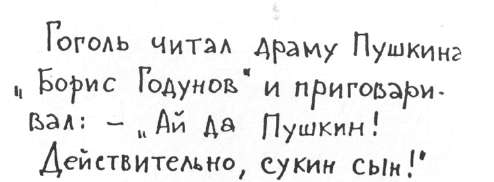 Гоголь читал драму Пушкина
„Борис Годунов" и приговари-
вал: – „Ай да Пушкин!
Действительно, сукин сын!"